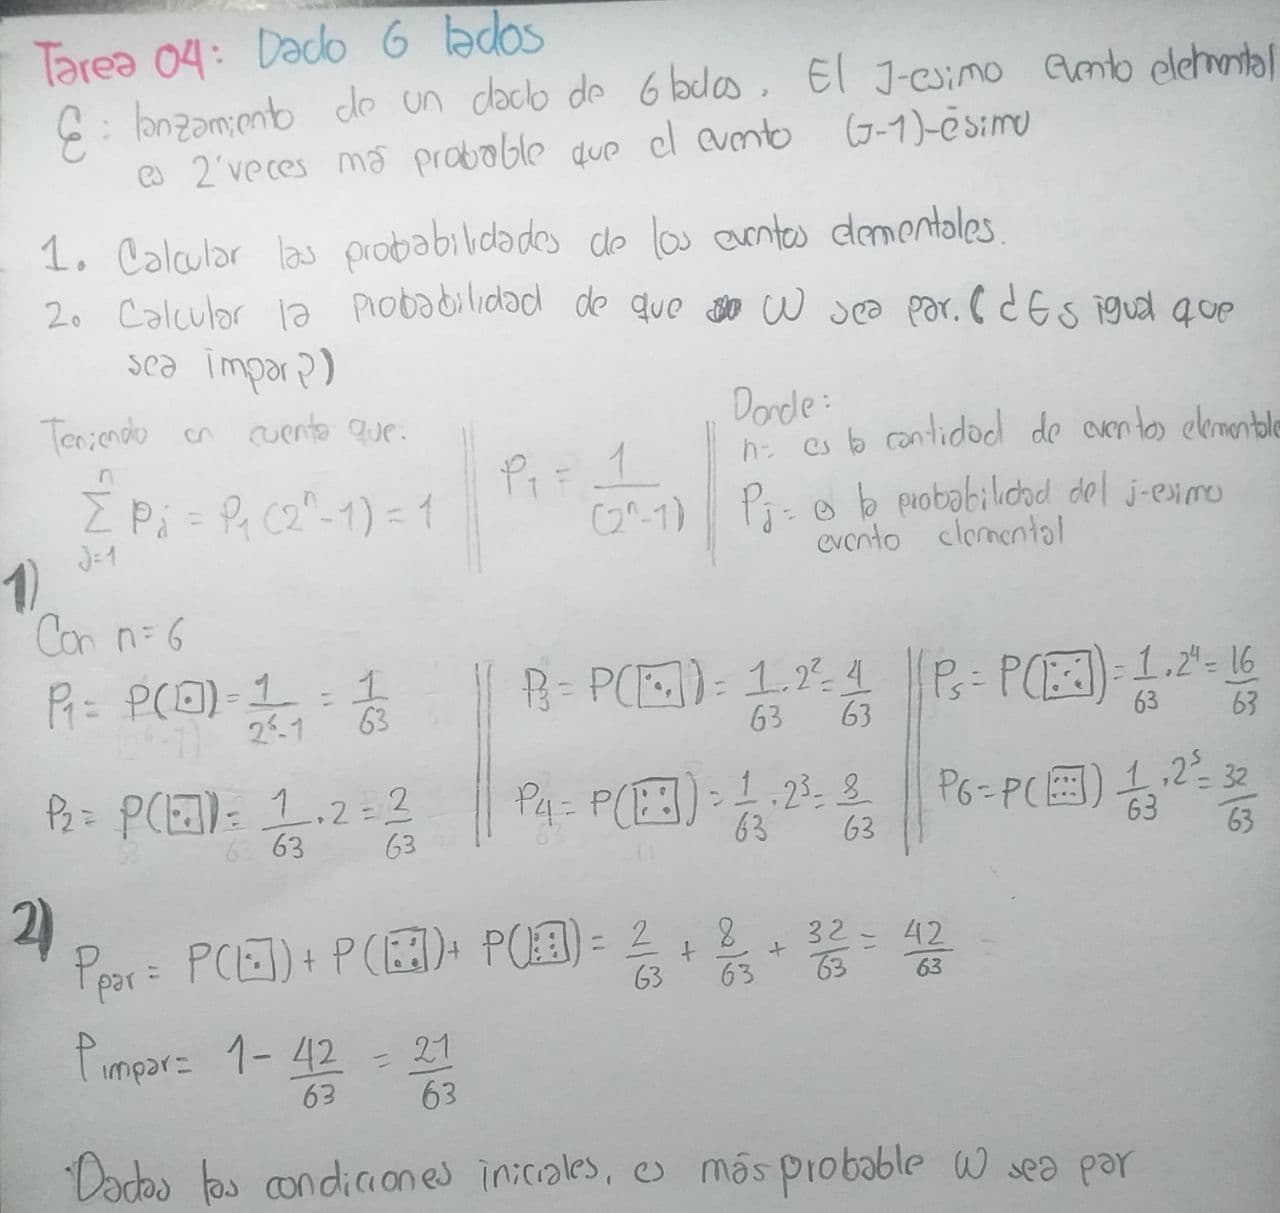 Tarea 04: Dado 6 lados
Ɛ: lanzamiento de un dado de 6 lados. El J-esimo evento elemental
es 2 veces más probable que el evento (J-1)-ésimo
1. Calcular las probabilidades de los eventos elementales.
2. Calcular la probabilidad de que ω sea par. (¿Es igual que
sea impar?)
Teniendo en cuenta que:
n
Σ Pj = P1 (2ⁿ-1) = 1
j=1
P1 = 1/(2ⁿ-1)
Donde:
n= es la cantidad de eventos elementales
Pj = es la probabilidad del j-esimo
evento elemental
1)
Con n=6
P1 = P(⚀) = 1/2⁶-1 = 1/63
P2 = P(⚁) = 1/63 . 2 = 2/63
P3 = P(⚂) = 1/63 . 2² = 4/63
P4 = P(⚃) = 1/63 . 2³ = 8/63
P5 = P(⚄) = 1/63 . 2⁴ = 16/63
P6 = P(⚅) 1/63 . 2⁵ = 32/63
2)
Ppar = P(⚁) + P(⚃) + P(⚅) = 2/63 + 8/63 + 32/63 = 42/63
Pimpar = 1 - 42/63 = 21/63
Dadas las condiciones iniciales, es más probable ω sea par